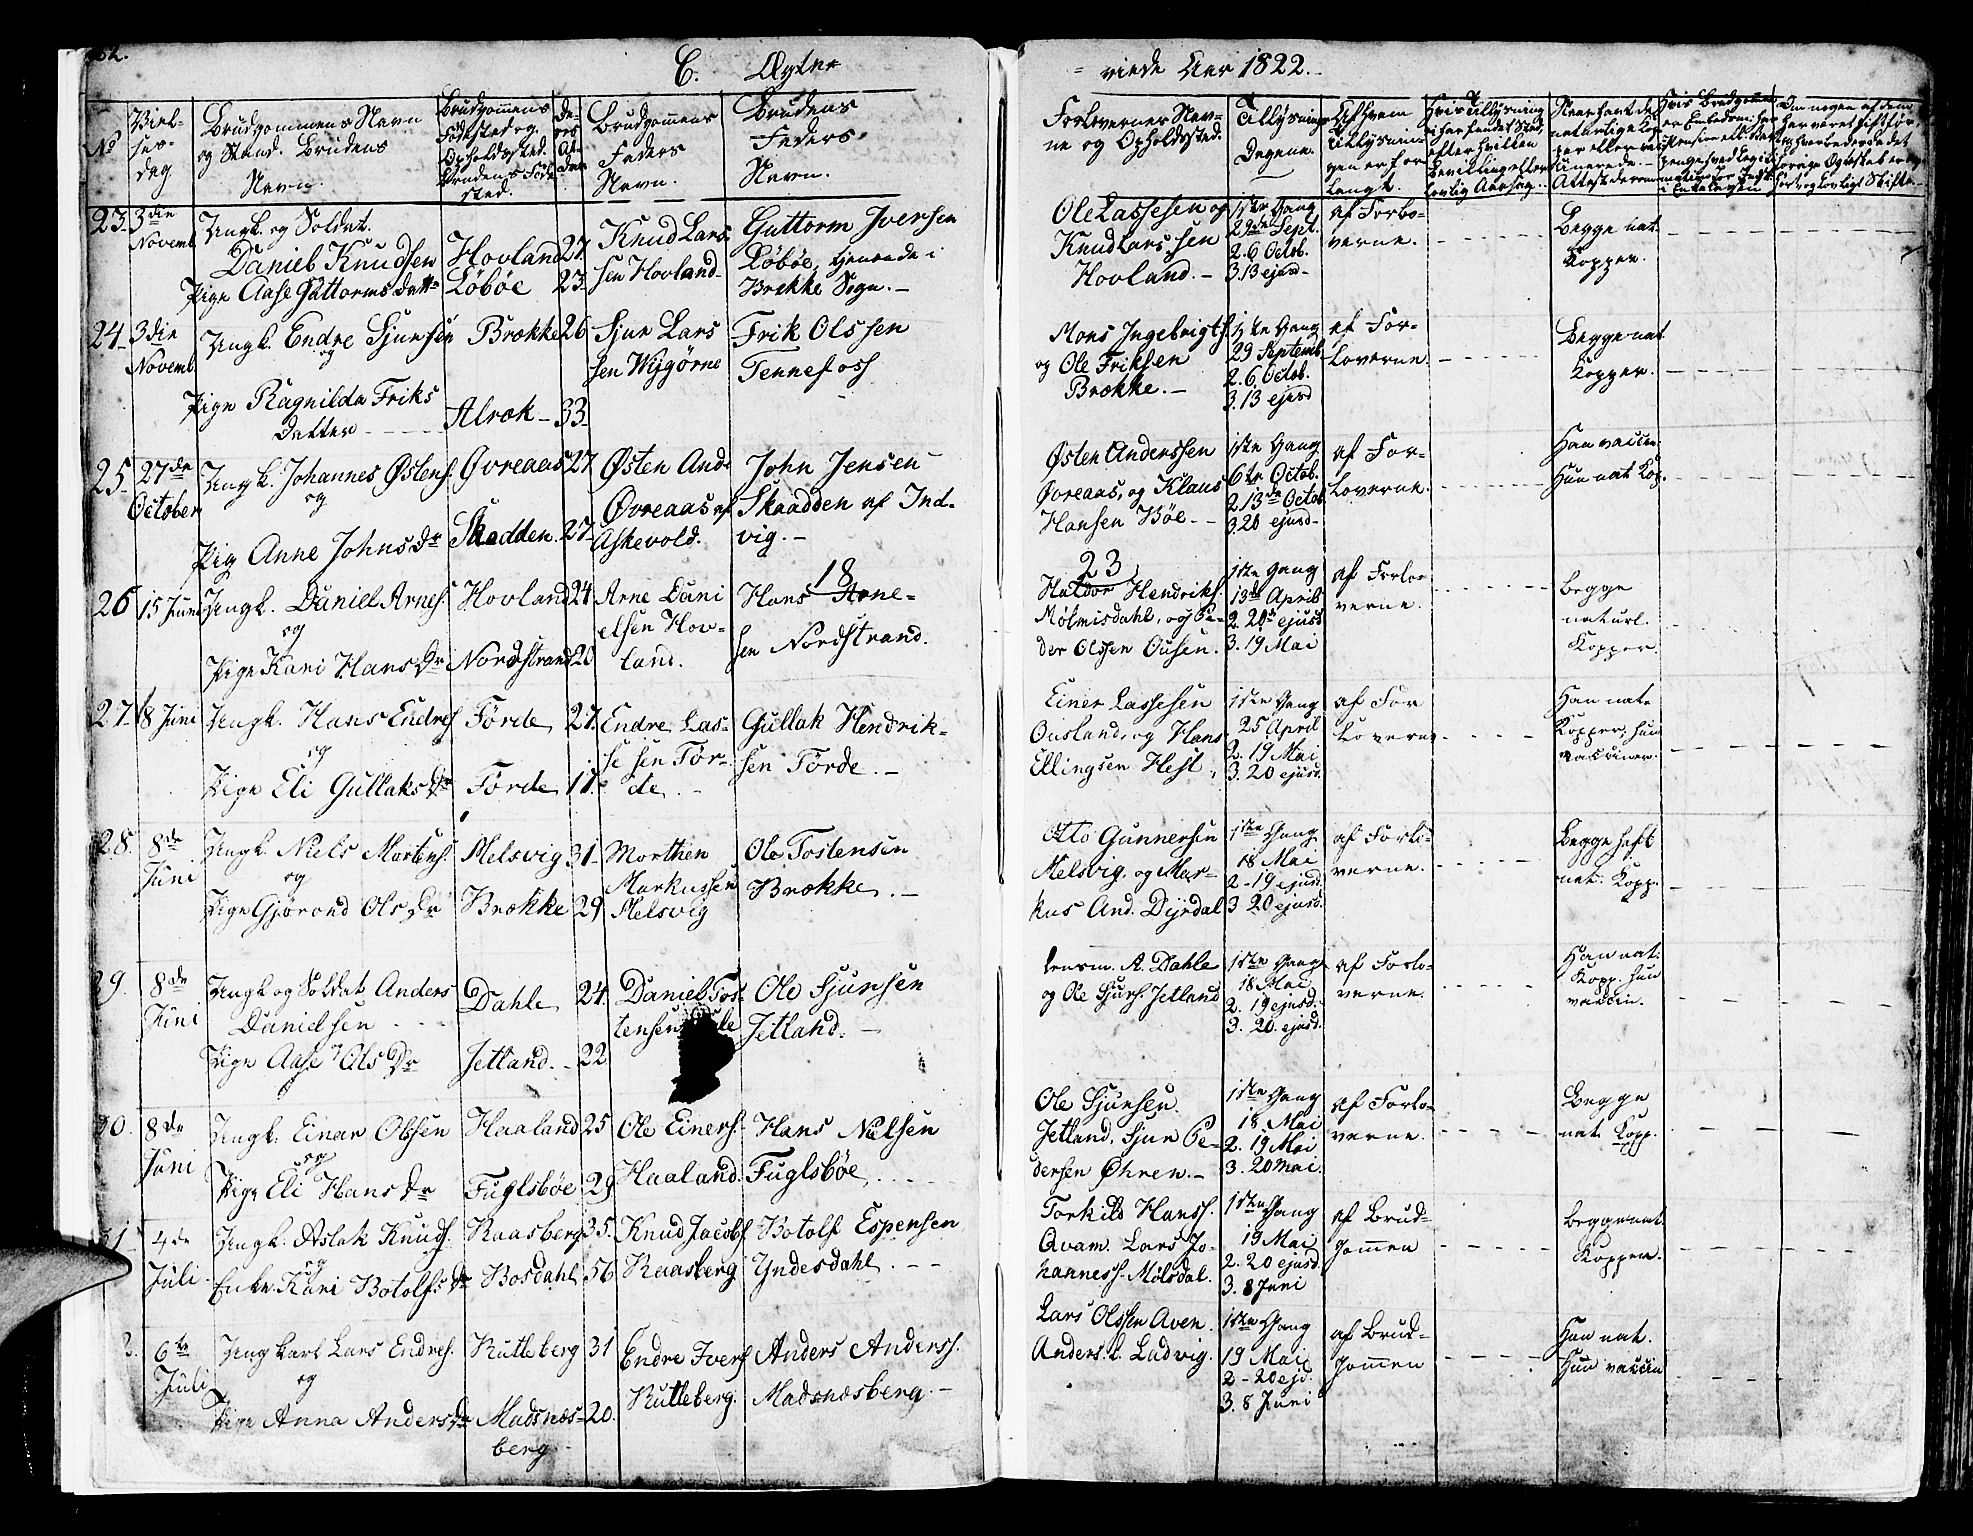 C. Ægte=
= viede Aar 1822.
No
Viel-
ses-
dag
Brudgommens Navn
og Stand. Brudens
Navn.
Brudgommens
Födested og
Opholdssted.
Brudens Föde
sted.
de-
res
Al-
der
Brudgommens
Faders
Navn.
Brudens
Faders
Navn.
Forloverners Nav-
ne og Opholdssted.
Tillysnings
Dagene.
Af hvem
Tillysnin-
gen er for
langt.
23. 3die
Novemb.
Ungk. og Soldat.
Daniel Knudsen
Pige Aase Guttormsdatter
Hovland 27.
Löböe 23.
Knud Lars-
sen Hovland.
Guttorm Iversen
Löböe, tjenende i
Brekke Sogn. -
Ole Lassesen og
Knud Larssen
Hovland. -
1ste Gang
29de Sept.
2. 6 Octob.
3. 13 ejusd.
af Forlo-
verne.
Begge nat.
Kopper.
24. 3die
Novemb.
Ungk. Endre Sjursen
og
Pige Ragnilda Friks
Datter
Brække 26
Alræk - 33.
Sjur Lars
sen
Frik Olssen
Tennefoss
Mons Ingebrigts.
og Ole Friksen
Brække. -
1ste Gang
29 Septemb.
2. 6. Octob.
3. 13 ejusd
af For-
loverne.
Begge nat.
Kopper.
25. 27de
October
Ungk. Johannes Østens.
og
Pig Anne Johns Dr
Øvreaas 27
Skadden 27.
Østen And.
Øvreaas af
Askevold.
John Jensen
Skaadden af Ind-
vig. -
Østen Anderssen
Øvreaas, og Klaus
Hansen Böe. -
1ste Gang
6te Octob.
2. 13de Octob.
3. 20 ejusd.
af For-
loverne.
Han vaccin.
Hun nat. Kop.
26 15 Juni
Ungk. Daniel Arnes.
og
Pige Kari Hans Dr
Hovland 24
Nordstrand 20
Arne Dani
elsen Hov-
land.
18
Hans Arne-
sen Nordstrand.
23
Haldor Hendriks.
Mölmisdahl, og Pe-
der Olssen Ousen.
1ste Gang
13de April
2. 20de ejusd
3. 19 Mai
af Forlo-
verne.
Begge
naturl.
Kopper.
27. 8 Juni
Ungk. Hans Endres.
og
Pige Eli Gullaks Dr
Förde 27.
Förde 17.
Endre Las-
sesen För-
de.
Gullak Hendrik-
sen Förde. -
Einer Lassesen
Ousland, og Hans
Ellingsen Hest.
1ste Gang
25 April
2. 19 Mai
3. 20 ejusd.
af For
loverne
Han nat.
Kopper, hun
vacciner.
28. 8de
Juni
Ungk. Niels Mortens.
og
Pige Gjörond Ols Dr
Melsvig 31.
Brække 29.
Morthen
Markussen
Melsvig
Ole Tostensen
Brække. -
Otto Gunnersen
Melsvig. og Mar-
kus And. Dyrdal
1ste Gang
18 Mai
2 - 19 ejusd
3 20 ejusd.
af Forlo-
verne.
Begge haft
nat. Kopp.
29. 8de
Juni
Ungk. og Soldat Anders
Danielsen
Pige Aase Ols Dr
Dahle 24.
Jetland. - 22
Daniel Tos-
tensen
Ole Sjursen
Jetland. -
Lensm. A. Dahle
og Ole Sjurs. Jetland
1ste Gang
18 Mai
2. 19 ejusd.
3. 20. ejusd.
af Forlo-
verne.
Han nat.
Kopp. hun
vaccin.
30. 8de
Juni
Ungk. Einar Olssen
og
Pige Eli Hans Dr
Haaland 25
Fuglsböe 29
Ole Einers.
Haaland.
Hans Nielsen
Fuglsböe.
Ole Sjursen.
Jetland. Sjur Pe-
dersen Öhren. -
1ste Gang
18. Mai
2. 19 Mai
3. 20 Mai.
af Forlo-
verne.
Begge
nat. Kopp.
31 4de
Juli
Ungk. Aslak Knuds.
og
Enke Kari Botolfs Dr
Raasberg 35.
Bosdahl 56
Knud Jacobs.
Raasberg
Botolf Espensen
Yndesdahl.
Torkild Hanss.
Qvam. Lars Jo-
hanness. Mölsdal.
1ste Gang
19 Mai
2. 20 ejusd
3. 8 Juni
af Brud-
gommen
Begge nat.
Kopper.
6te
Juli
Ungkarl Lars Endres.
og
Pige Anna Anders Dr
Rutleberg 31
Madsnæs- 20.
berg
Endre Ivers.
Rutleberg.
Anders Anderss.
Madsnæsberg. -
Lars Olssen Aven.
Anders L. Ladvig.
1ste Gang
19 Mai
2 - 20 ejd.
3. 8 Juni
af Brud-
gommen
Han nat.
Hun vaccin